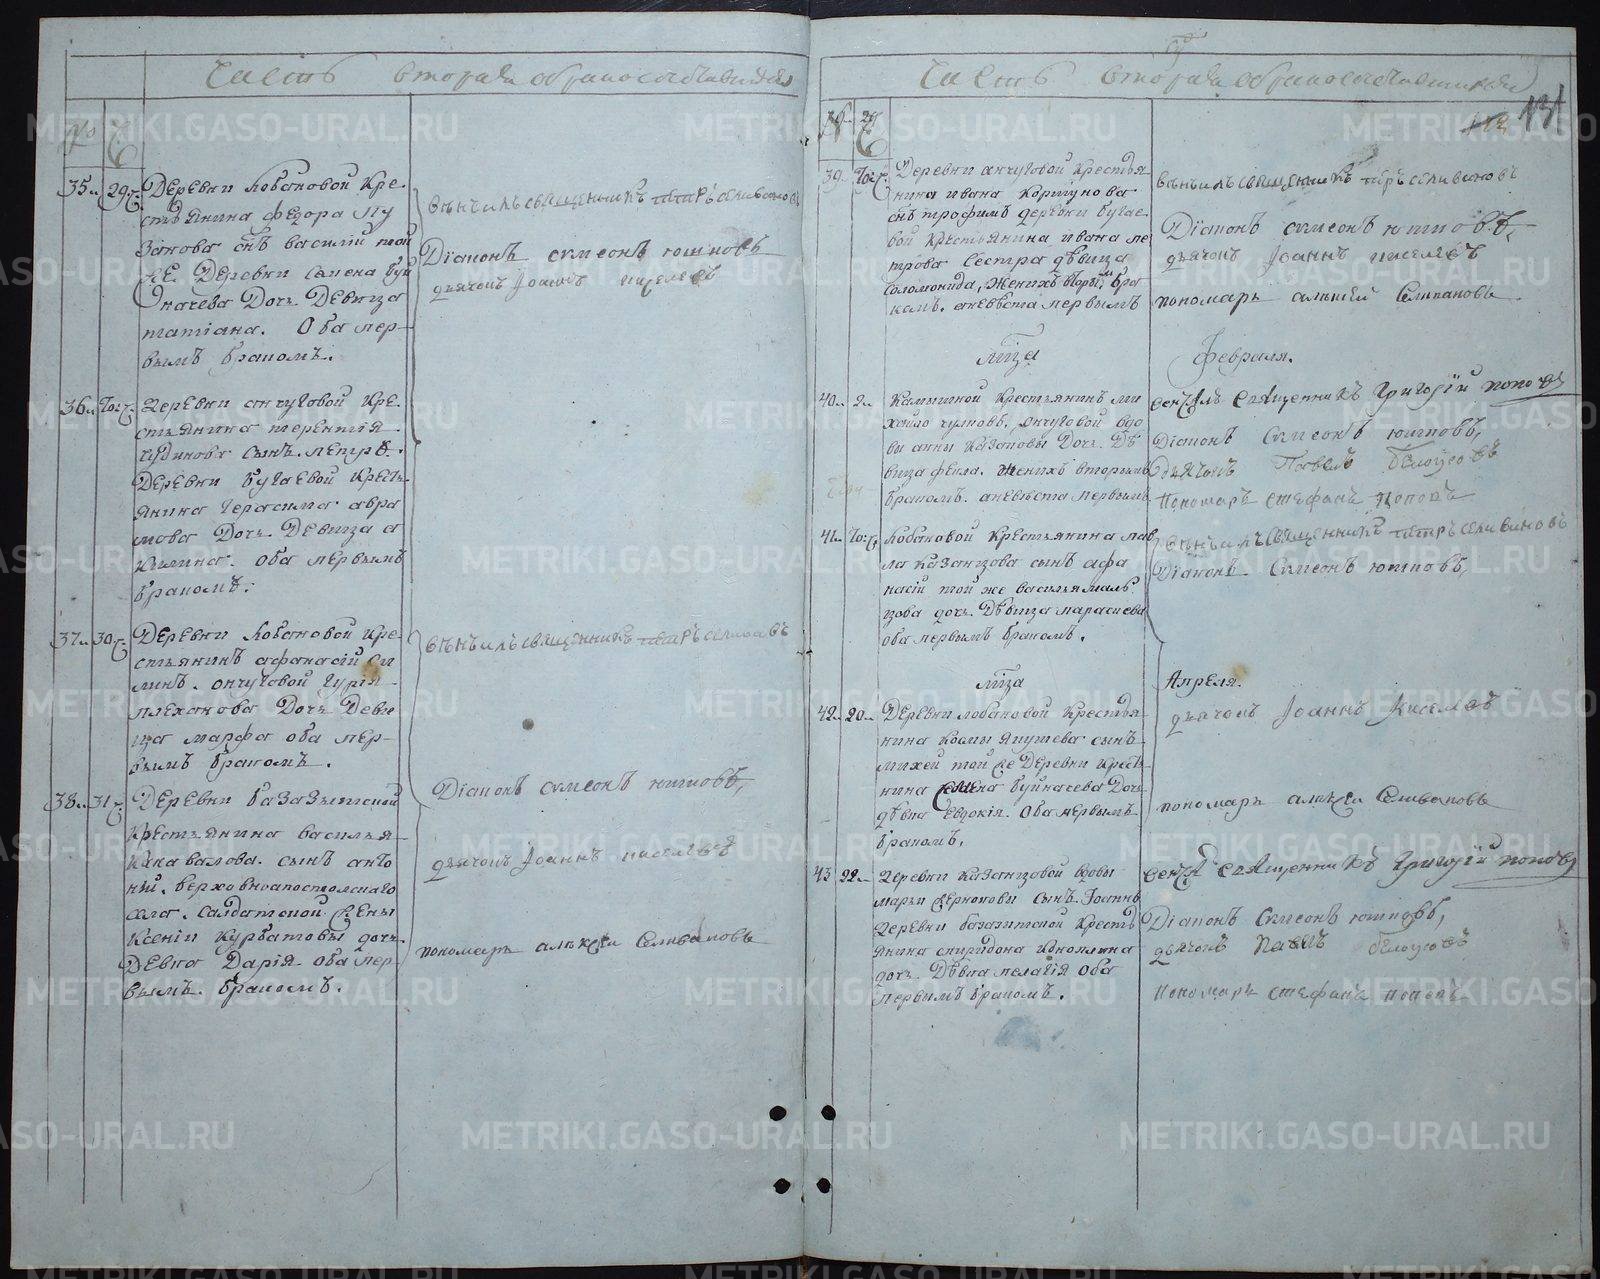 Часть вторая о бракосочетавшихся
№ Ч
35. 29 Ч. Деревни Лобановой Кре
стьянина Федора Пу
занова снъ василий той
же Деревни семена буй
начева Дочь Девица
татiана. Оба пер
вымъ бракомъ.
вѣнчалъ священникъ петръ селивановъ
Дiаконъ симеонъ юшковъ
дьячокъ Iоаннъ киселевъ
36. Той ч. Деревни анчуговой кре
стьянина терентiя
сынъ петръ.
Деревни бугаевой кресть
янина Герасима авра
мова Дочь Девица а
килина. оба первымъ
бракомъ.
37. 30 ч. Деревни Лобановой кре
стьянинъ афанасiй си
минъ. анчуговой гурiя
плеханова Дочь Деви
ца марфа оба пер
вымъ бракомъ.
вѣнчалъ священникъ петръ селивановъ
38. 31 ч. Деревни базазытской
крестьянина василья
Какавалова. сынъ анто
нiй. верховноапостолскаго
села. салдатской жены
Ксенiи Курбатовы дочь
Девка Дарiя. оба пер
вымъ бракомъ.
Дiаконъ симеонъ юшковъ,
дьячокъ Iоаннъ киселевъ
пономарь алѣксеи Селивановъ
Часть вторая о бракосочетавшихся
131
№ Ч
39. Той ч. Деревни анчуговой крестья
нина ивана коршунова
снъ трофимъ деревни бугае
вой крестьянина ивана пе
трова сестра дѣвица
соломонида, женихъ вторымъ бра
комъ. а невѣста первымъ
вѣнчалъ священникъ петръ селивановъ
Дiаконъ симеонъ юшковъ,
дьячокъ Iоаннъ киселевъ
пономарь алексѣй Селивановъ
мца Февраля.
40. 2. Камышной Крестьянинъ ми
хайло чулковъ, анчуговой вдо
вы анны Казаковы Дочь Дѣ
вица фекла. женихъ вторымъ
бракомъ. а невѣста первымъ
венчалъ священникъ Григорiй поповъ
Дiаконъ Симеонъ юшковъ,
Дьячокъ Павелъ бѣлоусовъ
Пономарь стефанъ поповъ
41. Той ч. Лобановой Крестьянина пав
ла Казанцова сынъ афа
насiй той же василья маль
цова дочь Дѣвица парасковѣ
оба первымъ бракомъ.
вѣнчалъ священникъ петръ селивановъ
Дiаконъ Симеонъ юшковъ,
мца Апреля.
42. 20. Деревни лобановой крестья
нина козмы Якушева сынъ
михей той же Деревни кресть
нина семена буйначева Дочь
дѣвка Евдокiя. Оба первымъ
бракомъ.
дьячокъ Iоаннъ Киселевъ
пономарь алѣксеи Селивановъ
43 22. Деревни Казанцовой вдовы
марьи черноковы сынъ Iоаннъ
Деревни базазытской кресть
янина спиридона
дочь Дѣвка пелагiя оба
первымъ бракомъ.
венчалъ священникъ Григорiй поповъ
Дiаконъ Симеонъ юшковъ,
дьячокъ Павелъ бѣлоусовъ
Пономарь стефанъ поповъ
METRIKI.GASO-URAL.RU